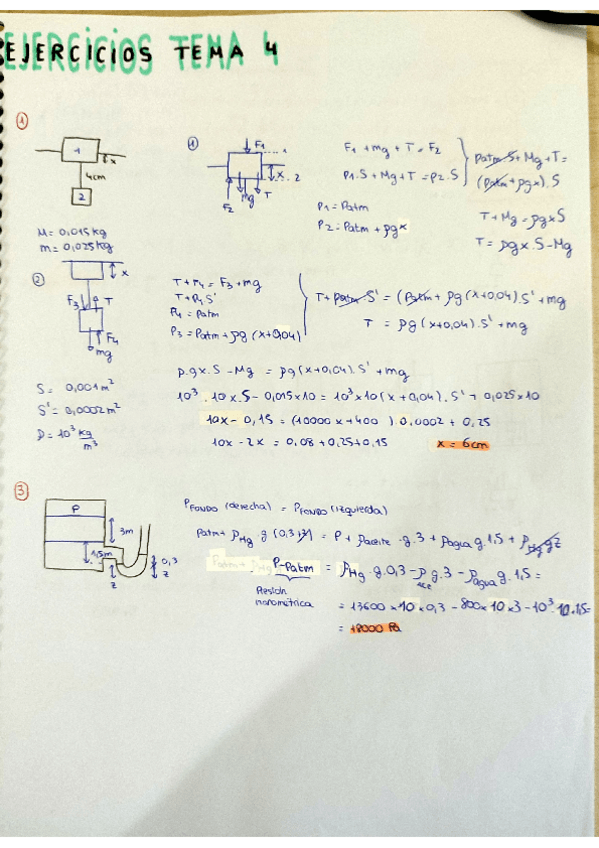 EJERCICIOS TEMA 4
①
1
x
4cm
2
M = 0,015kg
m = 0,025kg
①
F1
x
2
F2
Mg
T
F1 + mg + T = F2
P1.S + Mg + T = P2.S
P1 = Patm
P2 = Patm + ρgx
Patm S + Mg + T =
(Patm + ρgx).S
T + Mg = ρgxS
T = ρgx.S - Mg
②
x
F3
T
F4
mg
T + F4 = F3 + mg
T + P4 S'
P4 = Patm
P3 = Patm + ρg (x+0,04)
T + Patm S' = (Patm + ρg (x+0,04).S' + mg
T = ρg (x+0,04).S' + mg
S = 0,001 m²
S' = 0,0002 m²
D = 10³ kg/m³
ρ.gx.S - Mg = ρg (x+0,04).S' + mg
10³.10x.S - 0,015x10 = 10³x10 (x+0,04).S' + 0,025x10
10x - 0,15 = (10000x + 400).0,0002 + 0,25
10x - 2x = 0,08 + 0,25 + 0,15
x = 6cm
③
P
3m
1,5m
0,3
z
z
PFONDO (derecha) = PFONDO (izquierda)
Patm + ρHg g (0,3+z) = P + ρaceite.g.3 + ρagua g.1,5 + ρHg gz
P-Patm = ρHg.g.0,3 - ρace g.3 - ρagua g.1,5 =
Presión
manométrica
= 13600x10x0,3 - 800x10x3 - 10³.10.1,5 =
= 18000 Pa